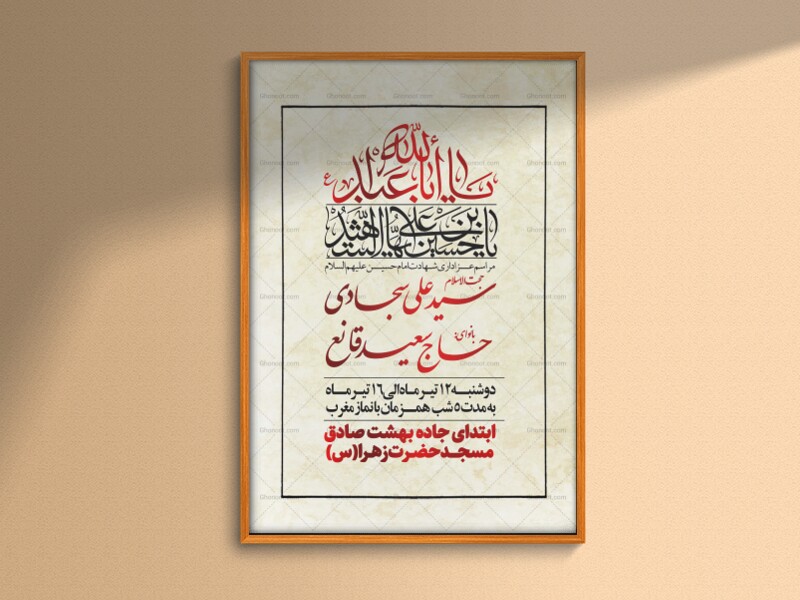 یا أباعبدالله ع
یا حسین بن علی ایها الشهید
مراسم عزاداری شهادت امام حسین علیهم السلام
حجت الاسلام
سید علی سجادی
بانوای:
حاج سعید قانع
دوشنبه ۱۲ تیر ماه الی ۱۶ تیر ماه
به مدت ۵ شب همزمان با نماز مغرب
ابتدای جاده بهشت صادق
مسجد حضرت زهرا (س)